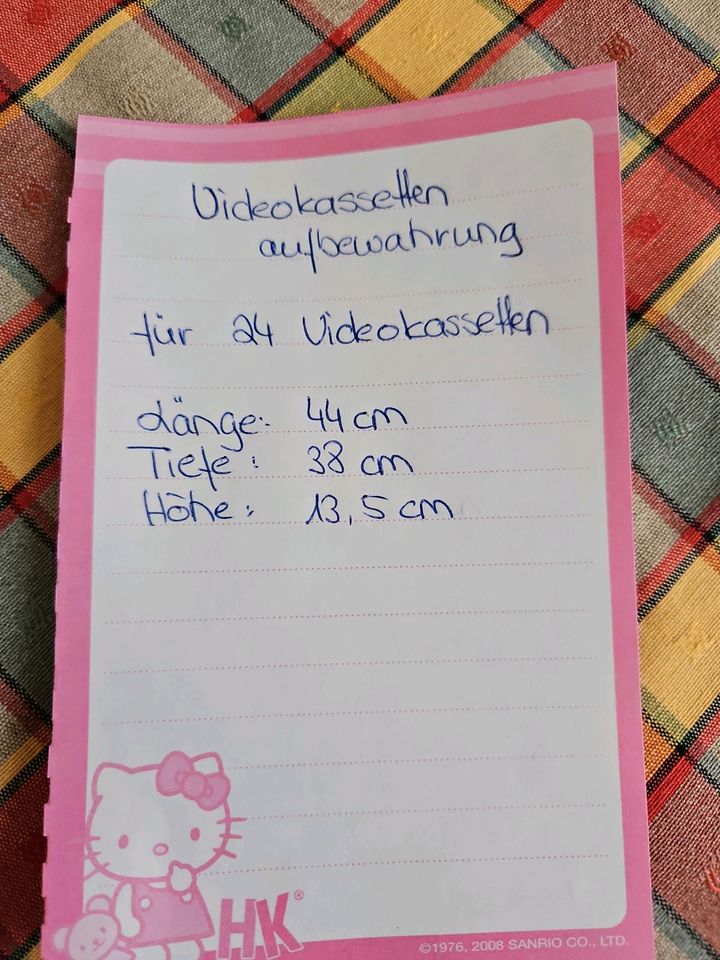 Videokassetten
aufbewahrung
für 24 Videokassetten
Länge: 44 cm
Tiefe: 38 cm
Höhe: 13,5 cm
HK®
©1976, 2008 SANRIO CO., LTD.